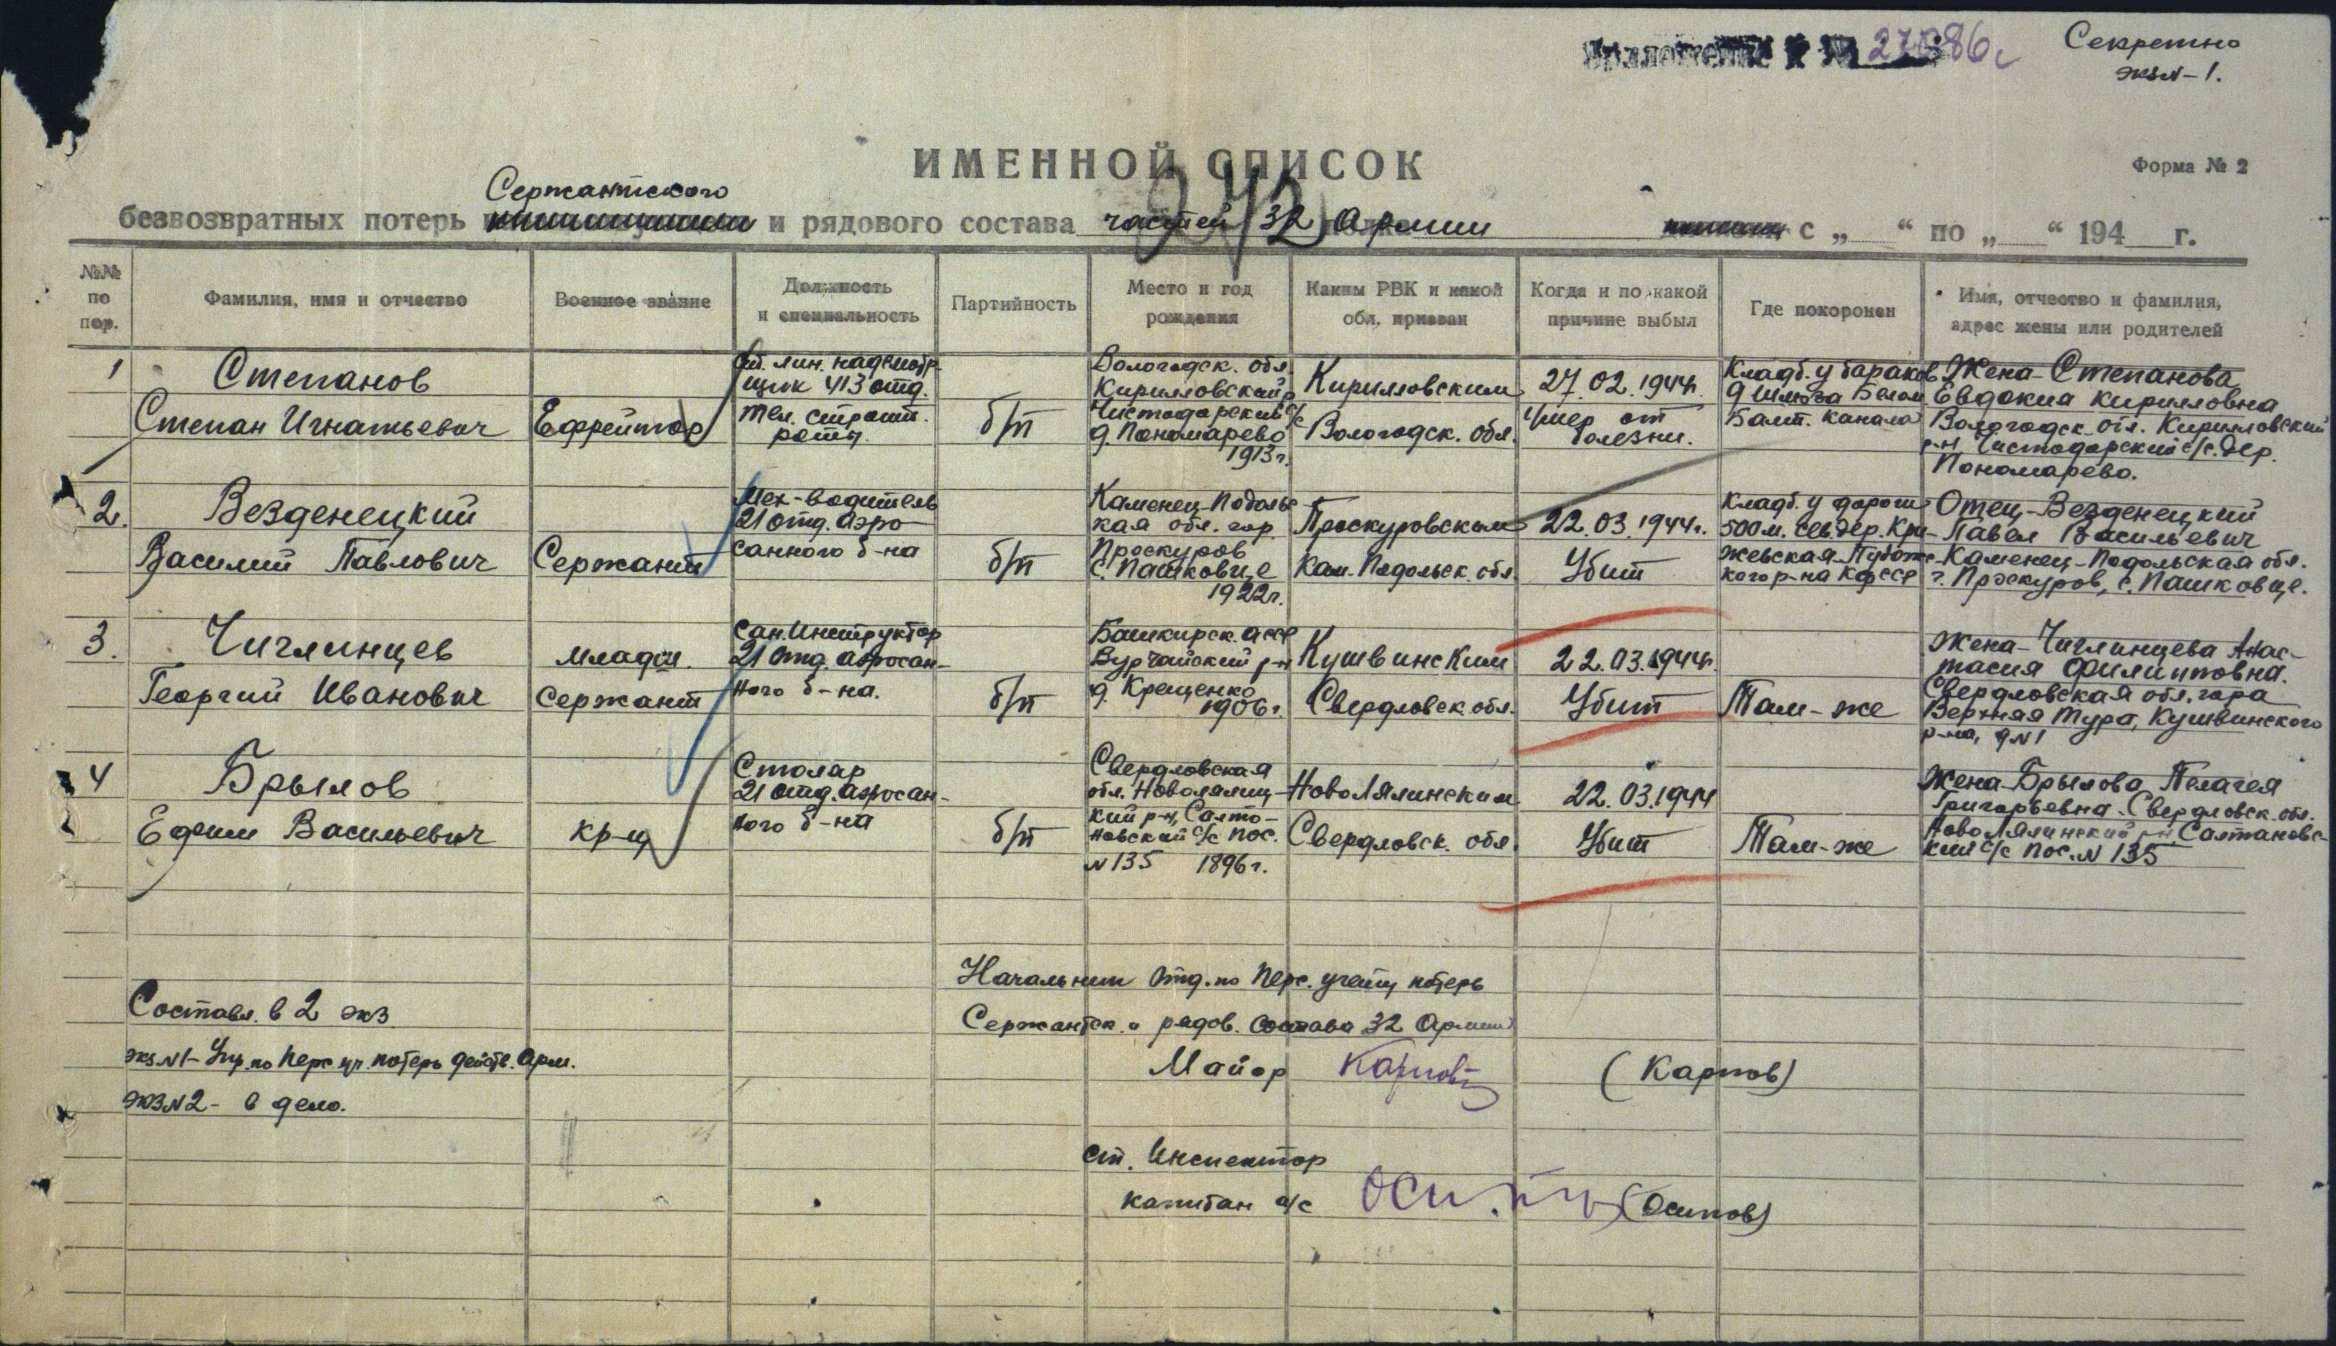 Приложение к №
Секретно
экз N-1.
ИМЕННОЙ СПИСОК
Форма № 2
Сержантского
безвозвратных потерь и рядового состава частей 32 Армии с „ “ по „ “ 194 г.
№№ по пор.
Фамилия, имя и отчество
Военное звание
Должность и специальность
Партийность
Место и год рождения
Каким РВК и какой обл. призван
Когда и по какой причине выбыл
Где похоронен
Имя, отчество и фамилия, адрес жены или родителей
1
Степанов
Степан Игнатьевич
Ефрейтор
ст. лин. надсмотр-
щик 413 отд.
тел. строит.
роты.
б/п
Вологодск. обл.
Кирилловский р
Чистодорский с/с
д. Пономарево
1913 г.
Кирилловским
Вологодск. обл.
27.02.1944г.
Умер от
болезни.
Кладб. у бараков
9 шлюза Белом.
Балт. канала
Жена-Степанова
Евдокия Кирилловна
Вологодск. обл. Кирилловский
р-н Чистодорский с/с. дер.
Пономарево.
2.
Везденецкий
Василий Павлович
Сержант
Мех-водитель
21 отд. аэро-
санного б-на
б/п
Каменец-Подольс-
кая обл. гор.
Проскуров
с. Пашковце
1922г.
Проскуровским
Кам-Подольск. обл.
22.03.1944г.
Убит
Кладб. у дороги
500м. сев. дер. Кри-
жевская Пудожс-
кого р-на КФССР
Отец-Везденецкий
Павел Васильевич
Каменец-Подольская обл.
г. Проскуров, с. Пашковце.
3.
Чиглинцев
Георгий Иванович
Младш.
Сержант
Сан. Инструктор
21 отд. аэросан-
ного б-на.
б/п
Башкирск. АССР
р-н
д. Крещенко
1906г.
Кушвинским
Свердловск. обл.
22.03.1944г.
Убит
Там-же
Жена-Чиглинцева Анас-
тасия Филипповна.
Свердловская обл. гора
Верхняя Тура, Кушвинского
р-на, д N1
4
Брылов
Ефим Васильевич
кр-ц
Столяр
21 отд. аэросан-
ного б-на
б/п
Свердловская
обл. Новолялин-
кий р-н, Салто-
новский с/с пос.
N 135 1896г.
НовоЛялинским
Свердловск. обл.
22.03.1944
Убит
Там-же
Жена Брылова Пелагея
Григорьевна. Свердловск. обл.
НовоЛялинский р-н, Салтановс-
кий с/с пос. N 135
Начальник Отд. по Перс. учету потерь
Сержантск. и рядов. Состава 32 Армии
Майор Карпов (Карпов)
Составл. в 2 экз
экз N1- Упр. по Перс. уч. потерь действ. Арм.
экз N2- в дело.
Ст. Инспектор
капитан а/с (Осипов)